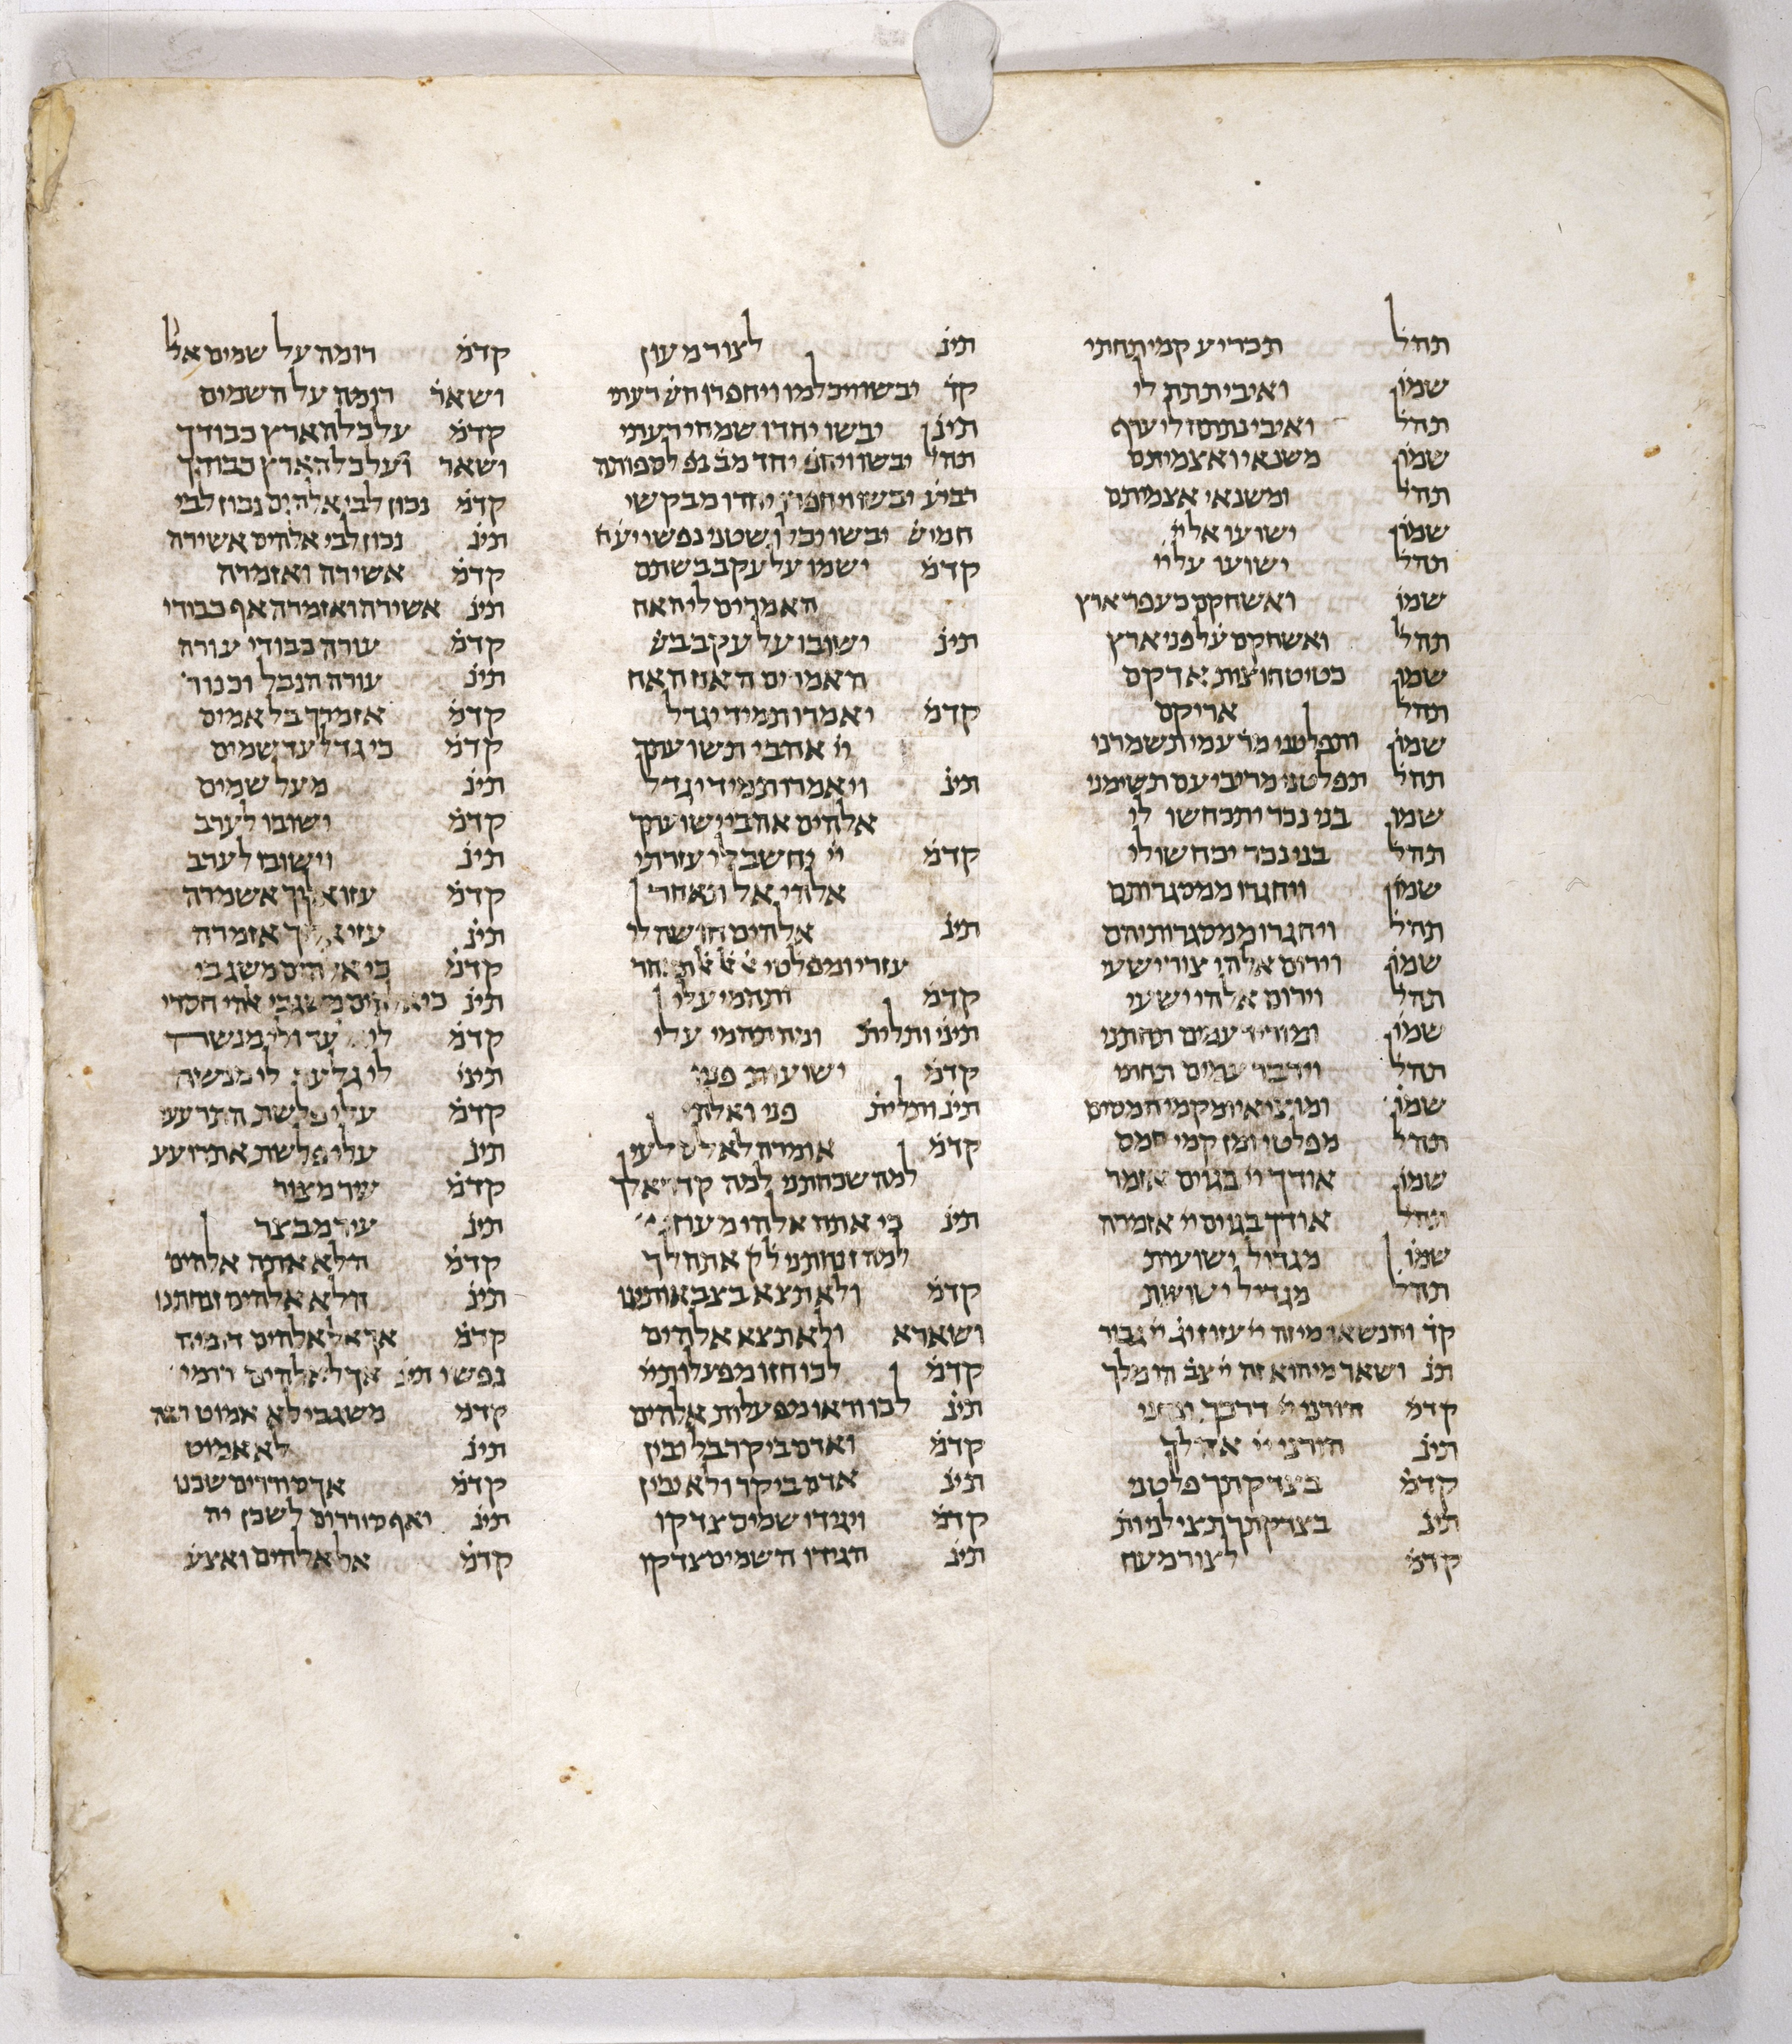 תהל תכריע קמי תחתי
שמון ואיבי תתת לי
תהל ואיבי נתתה לי ערף
שמון משנאי ואצמיתם
תהל ומשנאי אצמיתם
שמון ישועו אל ייי
תהל ישועו על ייי
שמו ואשחקם כעפר ארץ
תהל ואשחקם על פני ארץ
שמון כטיט חוצות אדקם
תהל אריקם
שמון ותפלטני מר עמי תשמרני
תהל תפלטני מריבי עם תשימני
שמון בני נכר יתכחשו לי
תהל בני נכר יכחשו לי
שמון ויחגרו ממסגרותם
תהל ויחרגו ממסגרותיהם
שמון וירום אלהי צור ישעי
תהל וירום אלהי ישעי
שמון ומוריד עמים תחתני
תהל וידבר עמים תחתי
שמון ומוציאי ומקמי חמסים
תהל מפלטי ומן קמי חמס
שמון אודך ייי בגוים אזמר
תהל אודך בגוים ייי אזמרה
שמון מגדול ישועות
תהל מגדיל ישועות
קד והנשאו מי זה ייי עזוז וג ייי גבור
תנ ושאר מי הוא זה ייי צב הו מלך
קדמ הורני ייי דרכך ונחני
תינ הורני ייי
קדמ בצדקתך פלטני
תינ בצדקתך תצילני ות
קדמ לצור מעוז
תינ לצור מעון
קד יבשו ויכלמו ויחפרו חש רעתי
תינ יבשו יחדו שמחי רעתי
תהל יבשו ויחפ יחד מב נפ לספותה
רביע יבשו ויחפרו יחדו מבקשי
חמיש יבשו יכלו שטני נפשי יע
קדמ ישמו על עקב בשתם
האמרים לי האח
תינ ישובו על עקב בש
האמרים האח האח
קדמ יאמרו תמיד יגדל
ייי אהבי תשועתך
תינ ויאמרו תמיד יגדל
אלהים אהבי ישועתך
קדמ ייי יחשב לי עזרתי
אלהי אל תאחר
תינ אלהים חושה לי
עזרי ומפלטי
קדמ ותהמי עלי
תינ ותלית ומה תהמי עלי
קדמ ישועות פניו
תינ ותלית פני ואלהי
קדמ אומרה לאל סלעי
למה שכחתני למה קדר אלך
תינ כי אתה אלהי מעוזי
למה זנחתני ל ק אתהלך
קדמ ולא תצא בצבאותינו
ושארא ולא תצא אלהים
קדמ לכו חזו מפעלות ייי
תינ לכו וראו מפעלות אלהים
קדמ ואדם ביקר בל ילין
תינ אדם ביקר ולא יבין
קדמ ויגידו שמים צדקו
תינ הגידו השמים צדקו
קדמ רומה על שמים אל
ושאר רומה על השמים
קדמ על כל הארץ כבודך
ושאר ועל כל הארץ כבודך
קדמ נכון לבי אלהים נכון לבי
תינ נכון לבי אלהים אשירה
קדמ אשירה ואזמרה
תינ אשירה ואזמרה אף כבודי
קדמ עורה כבודי עורה
תינ עורה הנבל וכנור
קדמ אזמרך בל אמים
קדמ כי גדל עד שמים
תינ מעל שמים
קדמ ישובו לערב
תינ וישובו לערב
קדמ עזו אליך אשמרה
תינ עזי אליך אזמרה
קדמ כי אלהים משגבי
תינ כי אלהים משגבי אלהי חסדי
קדמ לי ולי מנשה
תינ לי גלעד לי מנשה
קדמ עלי פלשת התרעעי
תינ עלי פלשת אתרועע
קדמ עיר מצור
תינ עיר מבצר
קדמ הלא אתה אלהים
תינ הלא אלהים זנחתנו
קדמ אך אל אלהים דומיה
נפשי תינ אך לאלהים דומי
קדמ משגבי לא אמוט רבה
תינ לא אמוט
קדמ אך סוררים שכנו
תינ ואף סוררים לשכן יה
קדמ אל אלהים ואצע